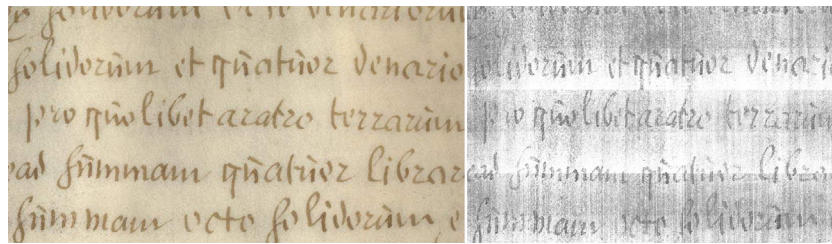 solidorum et quatuor denario
pro quolibet aratro terrarum
ad summam quatuor librar
summam octo solidorum e
solidorum et quatuor denario
pro quolibet aratro terrarum
ad summam quatuor libra
summam octo solidorum